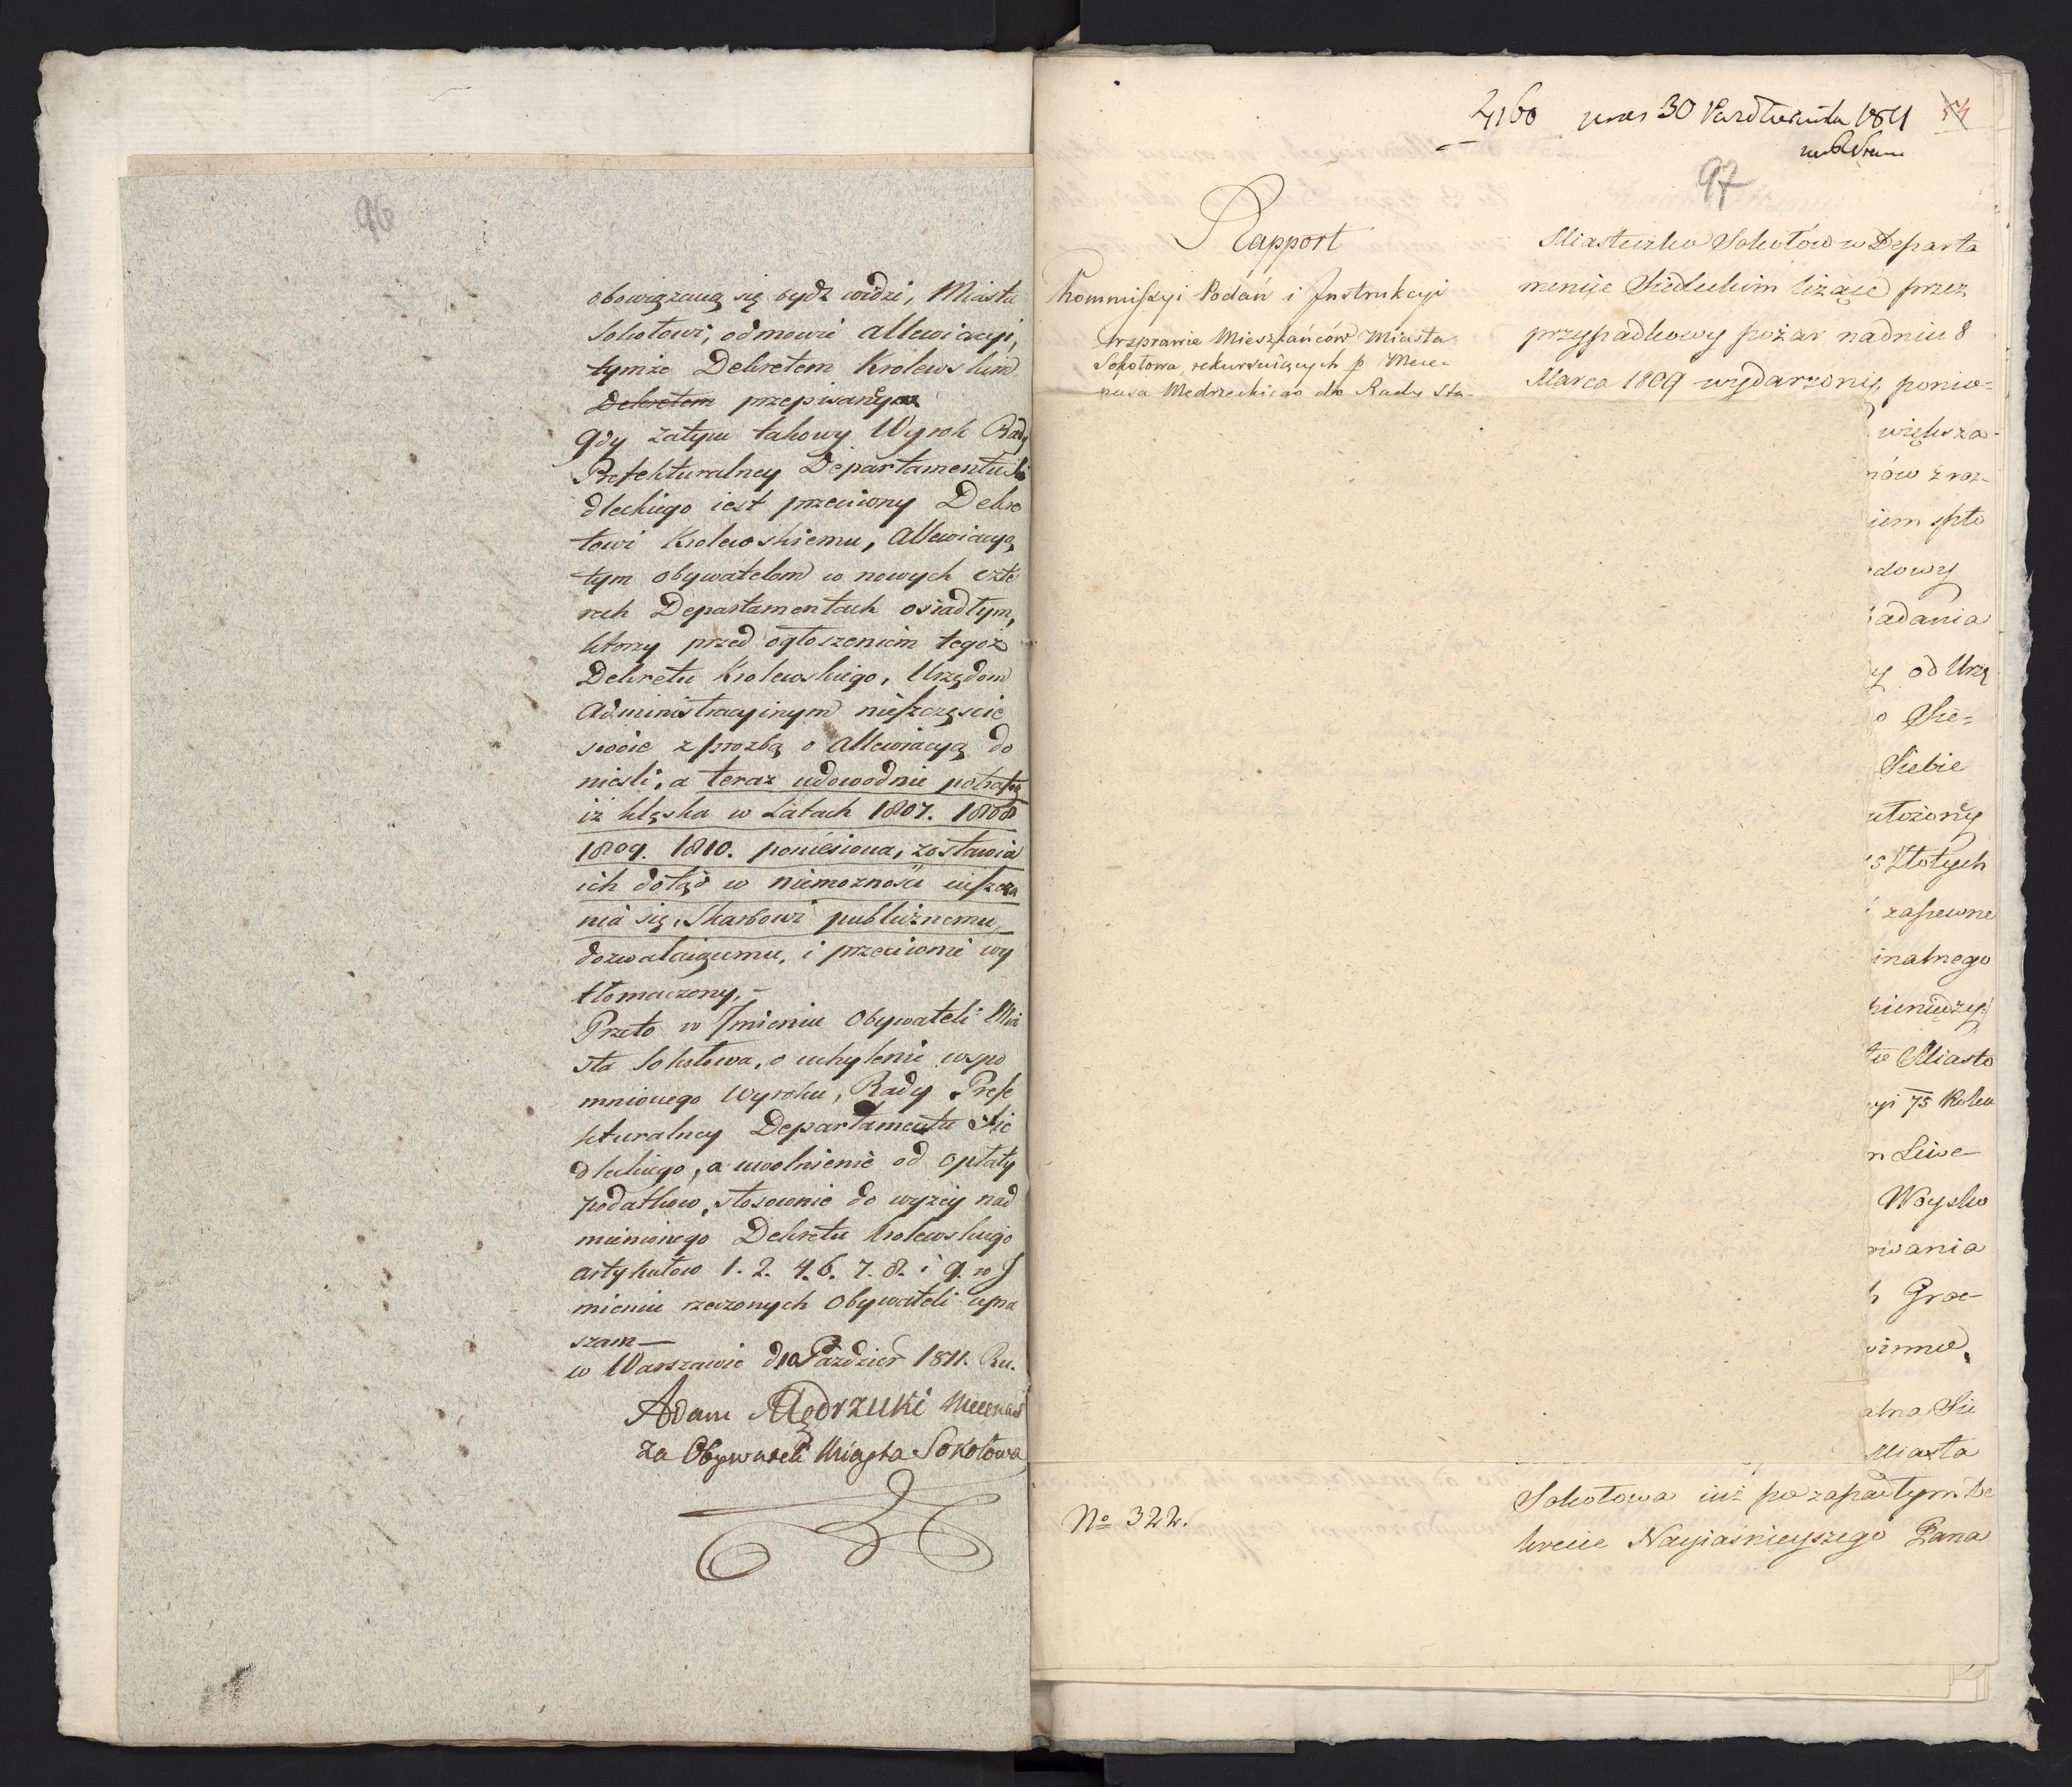 96
obowiązaną się bydź widzi, Miastu
Sokołowi, odmówić allewiacyi,
tymże Dekretem Krolewskim
Dekretem przepisaney
gdy zatym takowy Wyrok Rady
Prefekturalney Departamentu Si
dleckiego iest przeciwny Dekre
towi Krolewskiemu, Allewiacyą
tym obywatelom w nowych czte
rech Departamentach osiadłym,
ktorzy przed ogłoszeniem tegoż
Dekretu Krolewskiego, Urzędom
Administracyinym nieszczęście
swoie z proźbą o allewiacyą do
nieśli, a teraz udowodnić potrafią
iż klęska w Latach 1807. 1808
1809. 1810. poniesiona, zostawia
ich dotąd w niemożności uiszcza
nia się Skarbowi publicznemu,
dozwalaiącemu, i przeciwnie wy
tłomaczony,-
Przeto w Jmieniu Obywateli Mia
sta Sokołowa, o uchylenie wspo
mnionego Wyroku, Rady Prefe
kturalney Departamentu Sie
dleckiego, a uwolnienie od opłaty
podatkow, stosownie do wyżey nad
mienionego Dekretu Krolewskiego
artykułow 1. 2. 4. 6. 7. 8. i 9. w J
mieniu rzeczonych Obywateli upra
szam—
w Warszawie d 10 Paździer 1811. Ru.
Adam Mędrzecki Mecenas
za Obywateli Miasta Sokołowa
4160 30 Października 1811 54
97
Rapport
Kommissyi Podań i Jnstrukcyi
w sprawie Mieszkańców Miasta
Sokołowa, rekurruiących p Mece-
nasa Mędrzeckiego do Rady Sta-
Miasteczko Sokołów w Departa
mencie Siedleckim leżące przez
przypadkowy pożar na dniu 8
Marca 1809 wydarzony, ponio-
większa-
nów z roz-
iem spło
dowy
adania
y od Urzę
o Sie-
Siebie
ułożony
s Złotych
zapewne
inalnego
pieniędzy
Miasto
yi 75 Roku
n Liwe-
Woysko
owania
h Grae-
winno,
alna Sie
Miasta
Sokołowa iuż po zapadłym De
krecie Nayiaśnieyszego Pana
No 322.